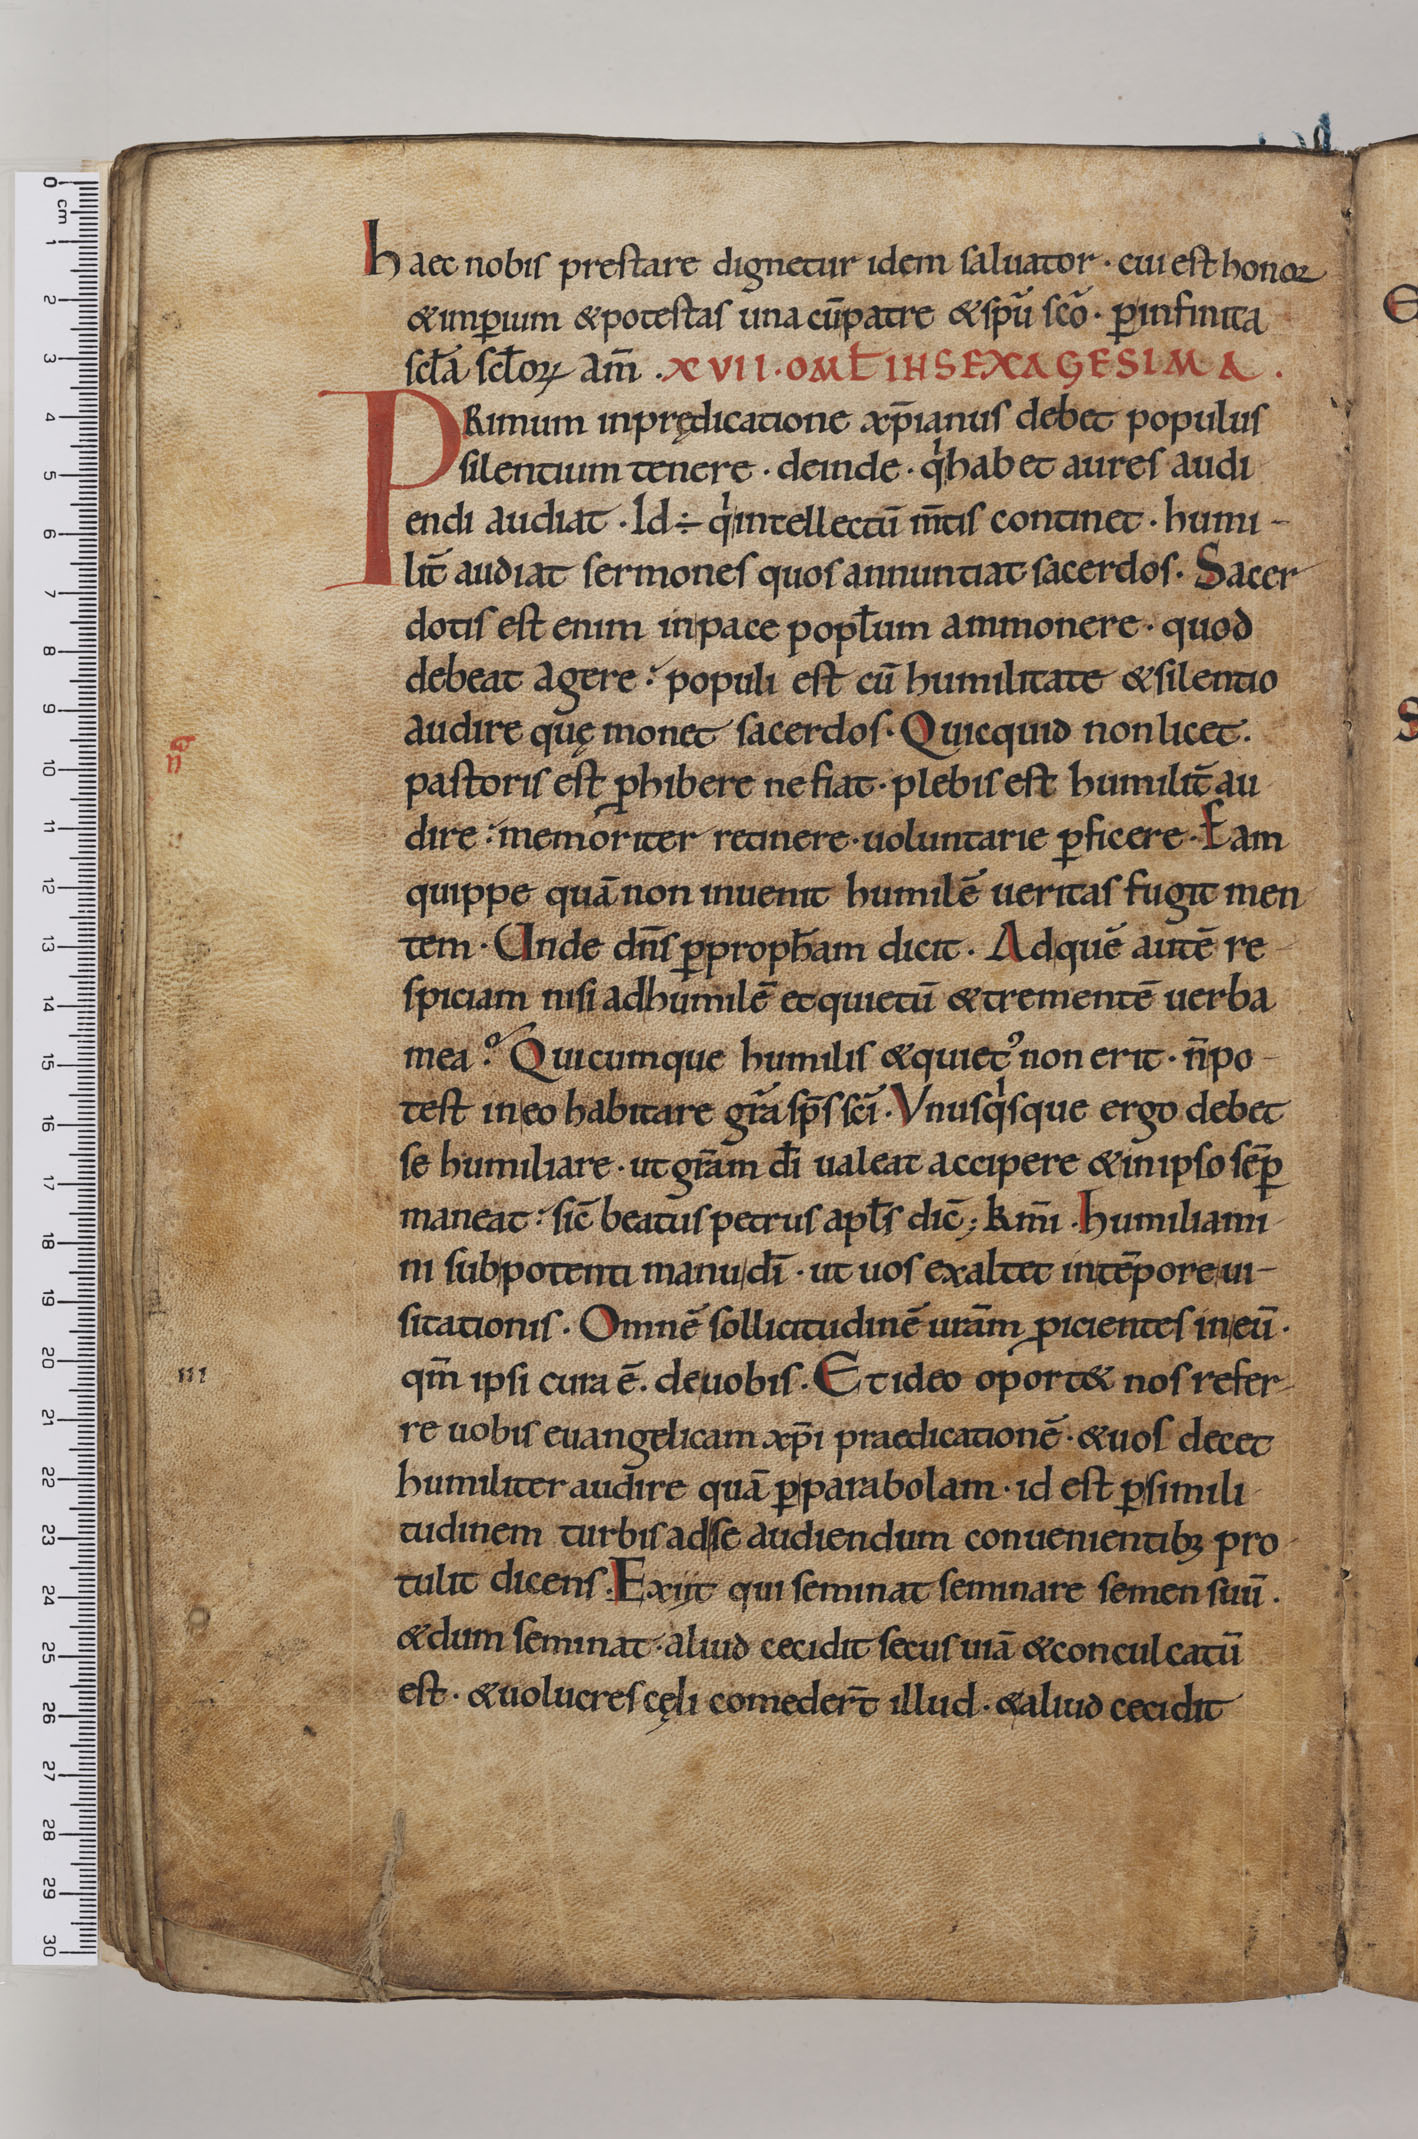 haec nobis prestare dignetur idem saluator · cui est honoꝝ
& imꝑium & potestas una cū patre & spū sc̄o · ꝑ infinita
scl̄a scl̄oꝝ am̄ . XVII · OML̄ IN SEXAGESIMA .
PRimum in prędicatione xp̄ianus debet populus
silentium tenere · deinde · qͥ habet aures audi
endi audiat · Id ÷ qͥ intellectū m̄tis continet · humi-
lit̄ audiat sermones quos annuntiat sacerdos · Sacer
dotis est enim in pace popl̄um ammonere · quod
debeat agere : populi est cū humilitate & silentio
audire quę monet sacerdos · Quicquid non licet .
pastoris est ꝓhibere ne fiat · plebis est humilit̄ au
dire : memoriter retinere · uoluntarie ꝑficere · Eam
quippe quā non inuenit humilē ueritas fugit men
tem · Unde dn̄s ꝑ proph̄am dicit · Ad quē autē re
spiciam nisi ad humilē et quietū & trementē uerba
mea ? Quicumque humilis & quietꝰ non erit · n̄ po-
test in eo habitare gr̄a sp̄s sc̄i · Vnusqͥsque ergo debet
se humiliare · ut gr̄am dī ualeat accipere & in ipso semꝑ
maneat : sic̄ beatus petrus apl̄s dic̄ ; km̄i · humiliami
ni sub potenti manu dī · ut uos exaltet in tēpore ui-
sitationis · Omnē sollicitudinē ur̄am ꝓicientes in eū ·
qm̄ ipsi cura ē . de uobis · Et ideo oport& nos refer-
re uobis euangelicam xp̄i praedicationē · & uos decet
humiliter audire quā ꝑ parabolam · id est ꝑ simili
tudinem turbis ad se audiendum conuenientibꝫ pro
tulit dicens · Exiit qui seminat seminare semen suū .
& dum seminat · aliud cecidit secus uiā & conculcatū
est · & uolucres cęli comeder̄t illud · & aliud cecidit
III